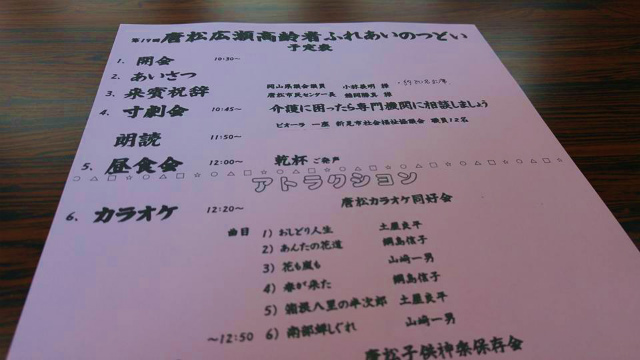 第19回 唐松広瀬高齢者ふれあいのつどい
予定表
1、 開会 10:30~
2、 あいさつ
3、 来賓祝辞 岡山県議会議員 小林義明 様
唐松市民センター長 様
4、 寸劇会 10:45~ 介護に困ったら専門機関に相談しましょう
ビオーラ一座 新見市社会福祉協議会 職員12名
朗読 11:50~
5、 昼食会 12:00~ 乾杯 ご発声
アトラクション
6、 カラオケ 12:20~ 唐松カラオケ同好会
曲目 1) おしどり人生 土屋良平
2) あんたの花道 綱島信子
3) 花も嵐も 山崎一男
4) 春が来た 綱島信子
5) 箱根八里の半次郎 土屋良平
~12:50 6) 南部蝉しぐれ 山崎一男
唐松子供神楽保存会